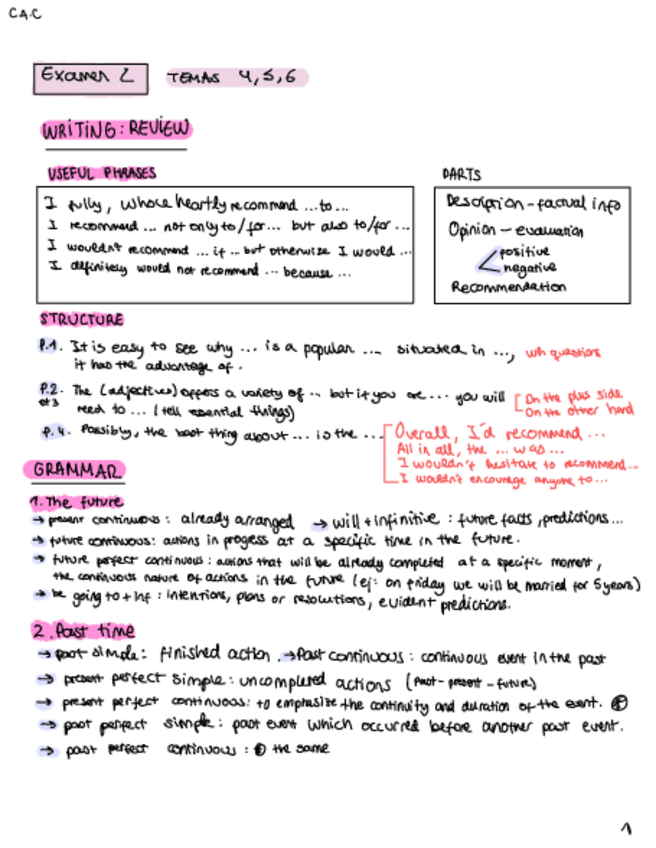 C A.C
Examen 2 TEMAS 4,5,6
WRITING: REVIEW
USEFUL PHRASES
I fully, whole heartly recommend ... to ...
I recommend ... not only to/for ... but also to/for ...
I wouldn't recommend ... if ... but otherwise I would ...
I definitely would not recommend ... because ...
PARTS
Description - factual info
Opinion - evaluation
positive
negative
Recommendation
STRUCTURE
P.1. It is easy to see why ... is a popular ... situated in ..., wh questions
it has the advantage of.
P.2. The (adjectives) offers a variety of ... but if you are ... you will
et 3 need to ... (tell essential things)
On the plus side
On the other hand
P.4. Possibly, the best thing about ... is the ...
Overall, I'd recommend ...
All in all, the ... was ...
I wouldn't hesitate to recommend...
I wouldn't encourage anyone to ...
GRAMMAR
1. The future
→ present continuous: already arranged → will + infinitive: future facts, predictions...
→ future continuous: actions in progress at a specific time in the future.
→ future perfect continuous: actions that will be already completed at a specific moment,
the continuous nature of actions in the future (ej: on friday we will be married for 5 years)
→ be going to + inf: intentions, plans or resolutions, evident predictions.
2. Past time
→ past simple: finished action. → Past continuous: continuous event in the past
→ present perfect simple: uncompleted actions (Past - present - future)
→ present perfect continuous: to emphasize the continuity and duration of the event.
→ past perfect simple: past event which occurred before another past event.
→ past perfect continuous: the same
1